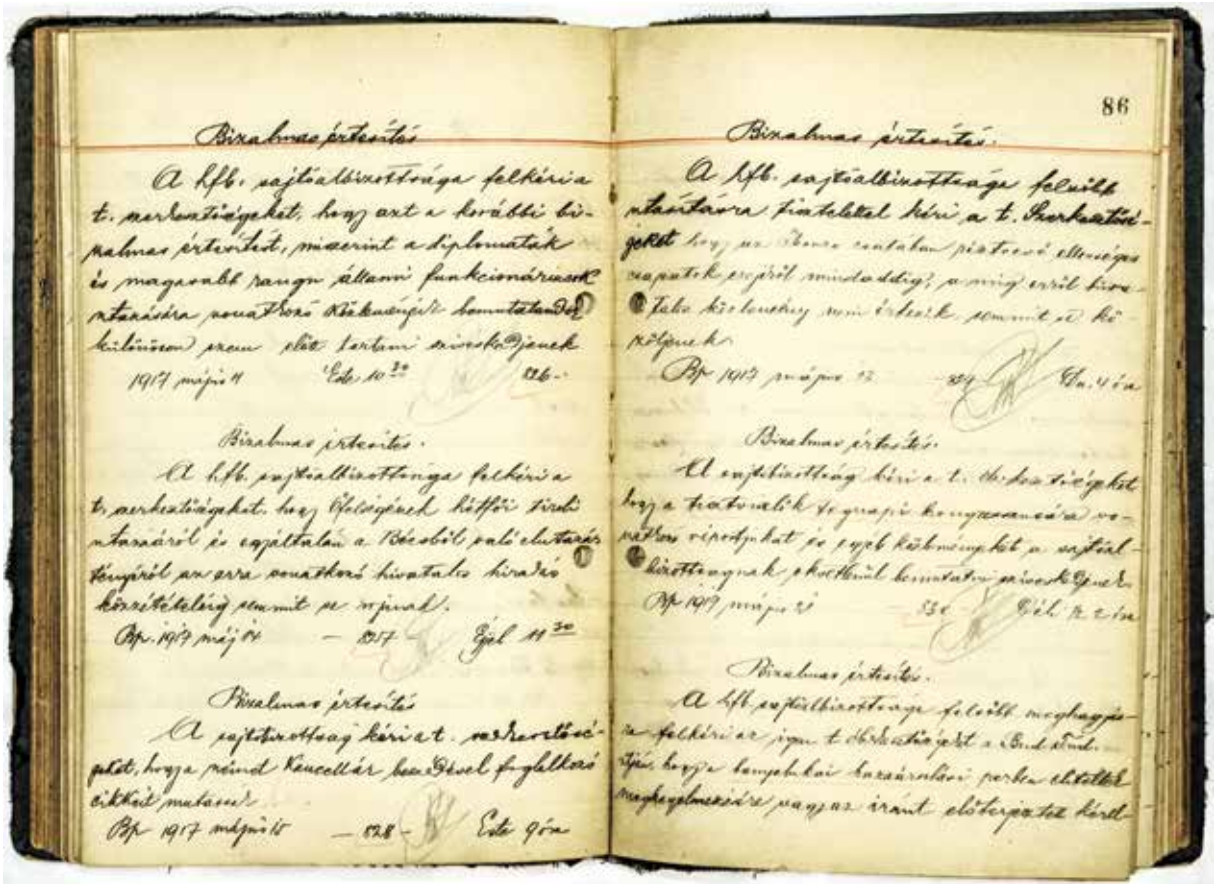 Bizalmas értesítés
A hfb. sajtóalbizottsága felkéri a
t. szerkesztőségeket, hogy azt a korábbi bi-
zalmas értesítést, miszerint a diplomaták
és magasabb rangu állami funkcionáriusok
utazására vonatkozó közleményeket bemutatandók
különösen szem előtt tartani sziveskedjenek
1917 május 11 Este 10 30 826-
Bizalmas értesítés.
A hfb. sajtóalbizottsága felkéri a
t. szerkesztőségeket, hogy Őfelségének hétfői tiroli
utazásáról és egyáltalán a Bécsből való elutazás
tényéről az erre vonatkozó hivatalos hiradás
közzétételéig semmit se irjanak.
Bp. 1917 máj 14 - 827 Éjel 11 30
Bizalmas értesítés
A sajtóbizottság kéri a t. szerkesztősé-
geket, hogy a német Kancellár beszédével foglalkozó
cikkeit mutassa
Bp 1917 május 15 - 828 - Este 9 óra
86
Bizalmas értesítés.
A hfb. sajtóalbizottsága felsőbb
utasításra tisztelettel kéri a t. Szerkesztősé-
geket hogy az csatában résztvevő ellenséges
csapatok erejéről mindaddig, a mig erről hiva-
talos közlemény nem érkezik, semmit se kö-
zöljenek
Bp 1917 május 23 - 829 Du. 4 óra
Bizalmas értesítés.
A sajtóbizottság kéri a t. szerkesztőségeket
hogy a tisztviselők tegnapi kongresszusára vo-
natkozó riportjukat és egyéb közleményeket a sajtóal-
bizottságnak okvetlenül bemutatni sziveskedjenek.
Bp 1917 május 830 - Éjel 2 óra
Bizalmas értesítés.
A hfb. sajtóalbizottsága felsőbb meghagyás-
ra felkéri az igen t. szerkesztőséget a Bud. Tud.
utján, hogy a perben elitéltek
megkegyelmezésére vagy az iránt előterjesztett kérel-